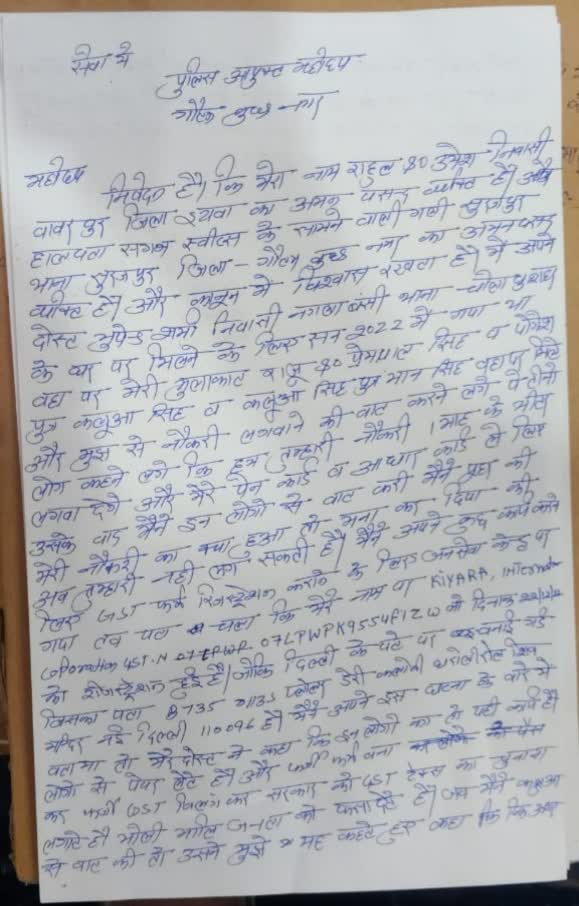 सेवा मे
पुलिस आयुक्त महोदय
गौतम बुध्द नगर
महोदय
निवेदन है। कि मेरा नाम राहुल S/O उमेश निवासी
पुर जिला इटावा का अमन पसन्द व्यक्ति है। और
हालपता सगम स्वीट्स के सामने वाली गली सुरजपुर
थाना सुरजपुर जिला - गौतम बुध्द नगर का अमनपसन्द
व्यक्ति है। और कानून मे विश्वास रखता है। मैं अपने
दोस्त भुपेन्द्र शर्मा निवासी नगला बंसी थाना - चोला बु०शहर
के घर पर मिलने के लिए सन 2022 मे गया था
वहा पर मेरी मुलाकात राजू S/O प्रेमपाल सिंह व योगेश
पुत्र कलूआ सिंह व कलूआ सिंह पुत्र भान सिंह वहा पर मिले
और मुझ से नौकरी लगवाने की बात करने लगे ये तीनो
लोग कहने लगे कि हम तुम्हारी नौकरी 1 माह के भीतर
लगवा देगे और मेरे पेन कार्ड व आधार कार्ड ले लिए
उसके बाद मैने इन लोगो से बात करी मैने पूछा की
मेरी नौकरी का क्या हुआ तो मना कर दिया की
अब तुम्हारी नही लग सकती है। मैने अपने कुछ काम करने
लिए GST फर्म रजिस्ट्रेशन कराने के लिए जनसेवा केन्द्र पर
गया तब पता चला कि मेरे नाम पर KIYARA, INTERNATIONAL
COPORATION GST.N 07LPWPK9554F1ZW को दिनाक
का रजिस्ट्रेशन हुई है। जोकि दिल्ली के पते पर बनाई गई
जिसका पता B-735 डेरी कलोनी घरोलीरोल शिव
मन्दिर नई दिल्ली 110096 है। मैने अपने इस घटना के बारे मे
बताया तो मेरे दोस्त ने कहा कि इन लोगो का तो यही काम है।
लोगो से पेपर लेते है। और फर्जी फर्म बना
कर फर्जी GST बिलिंग कर सरकार को GST टेक्स का चुनाव
लगाते है। भोली भाली जनता को फसा देते है। जब मैने कलूआ
से बात की तो उसने मुझे यह कहते हुए कहा कि